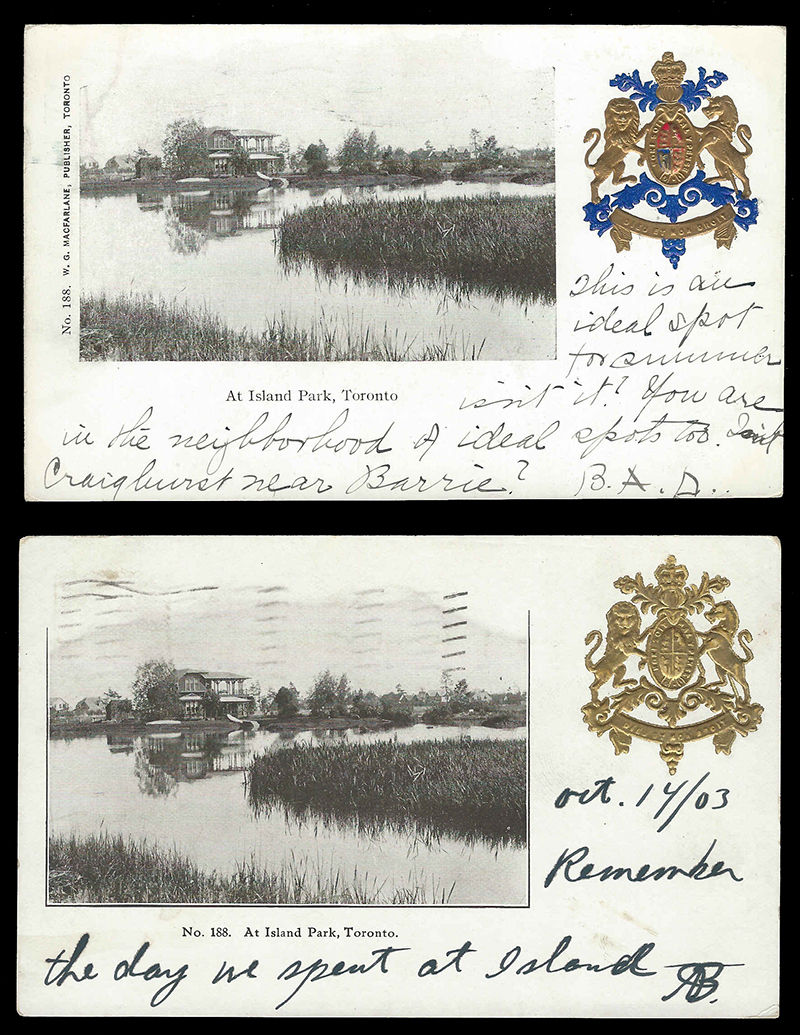 No. 188. W. G. MACFARLANE, PUBLISHER, TORONTO
At Island Park, Toronto
This is an
ideal spot
for summer
isn't it? You are
in the neighborhood of ideal spots too. Isn't
Craighurst near Barrie?
B. A. D.
ET MON DROIT
No. 188. At Island Park, Toronto.
Oct. 14/03
Remember
the day we spent at Island
AB.